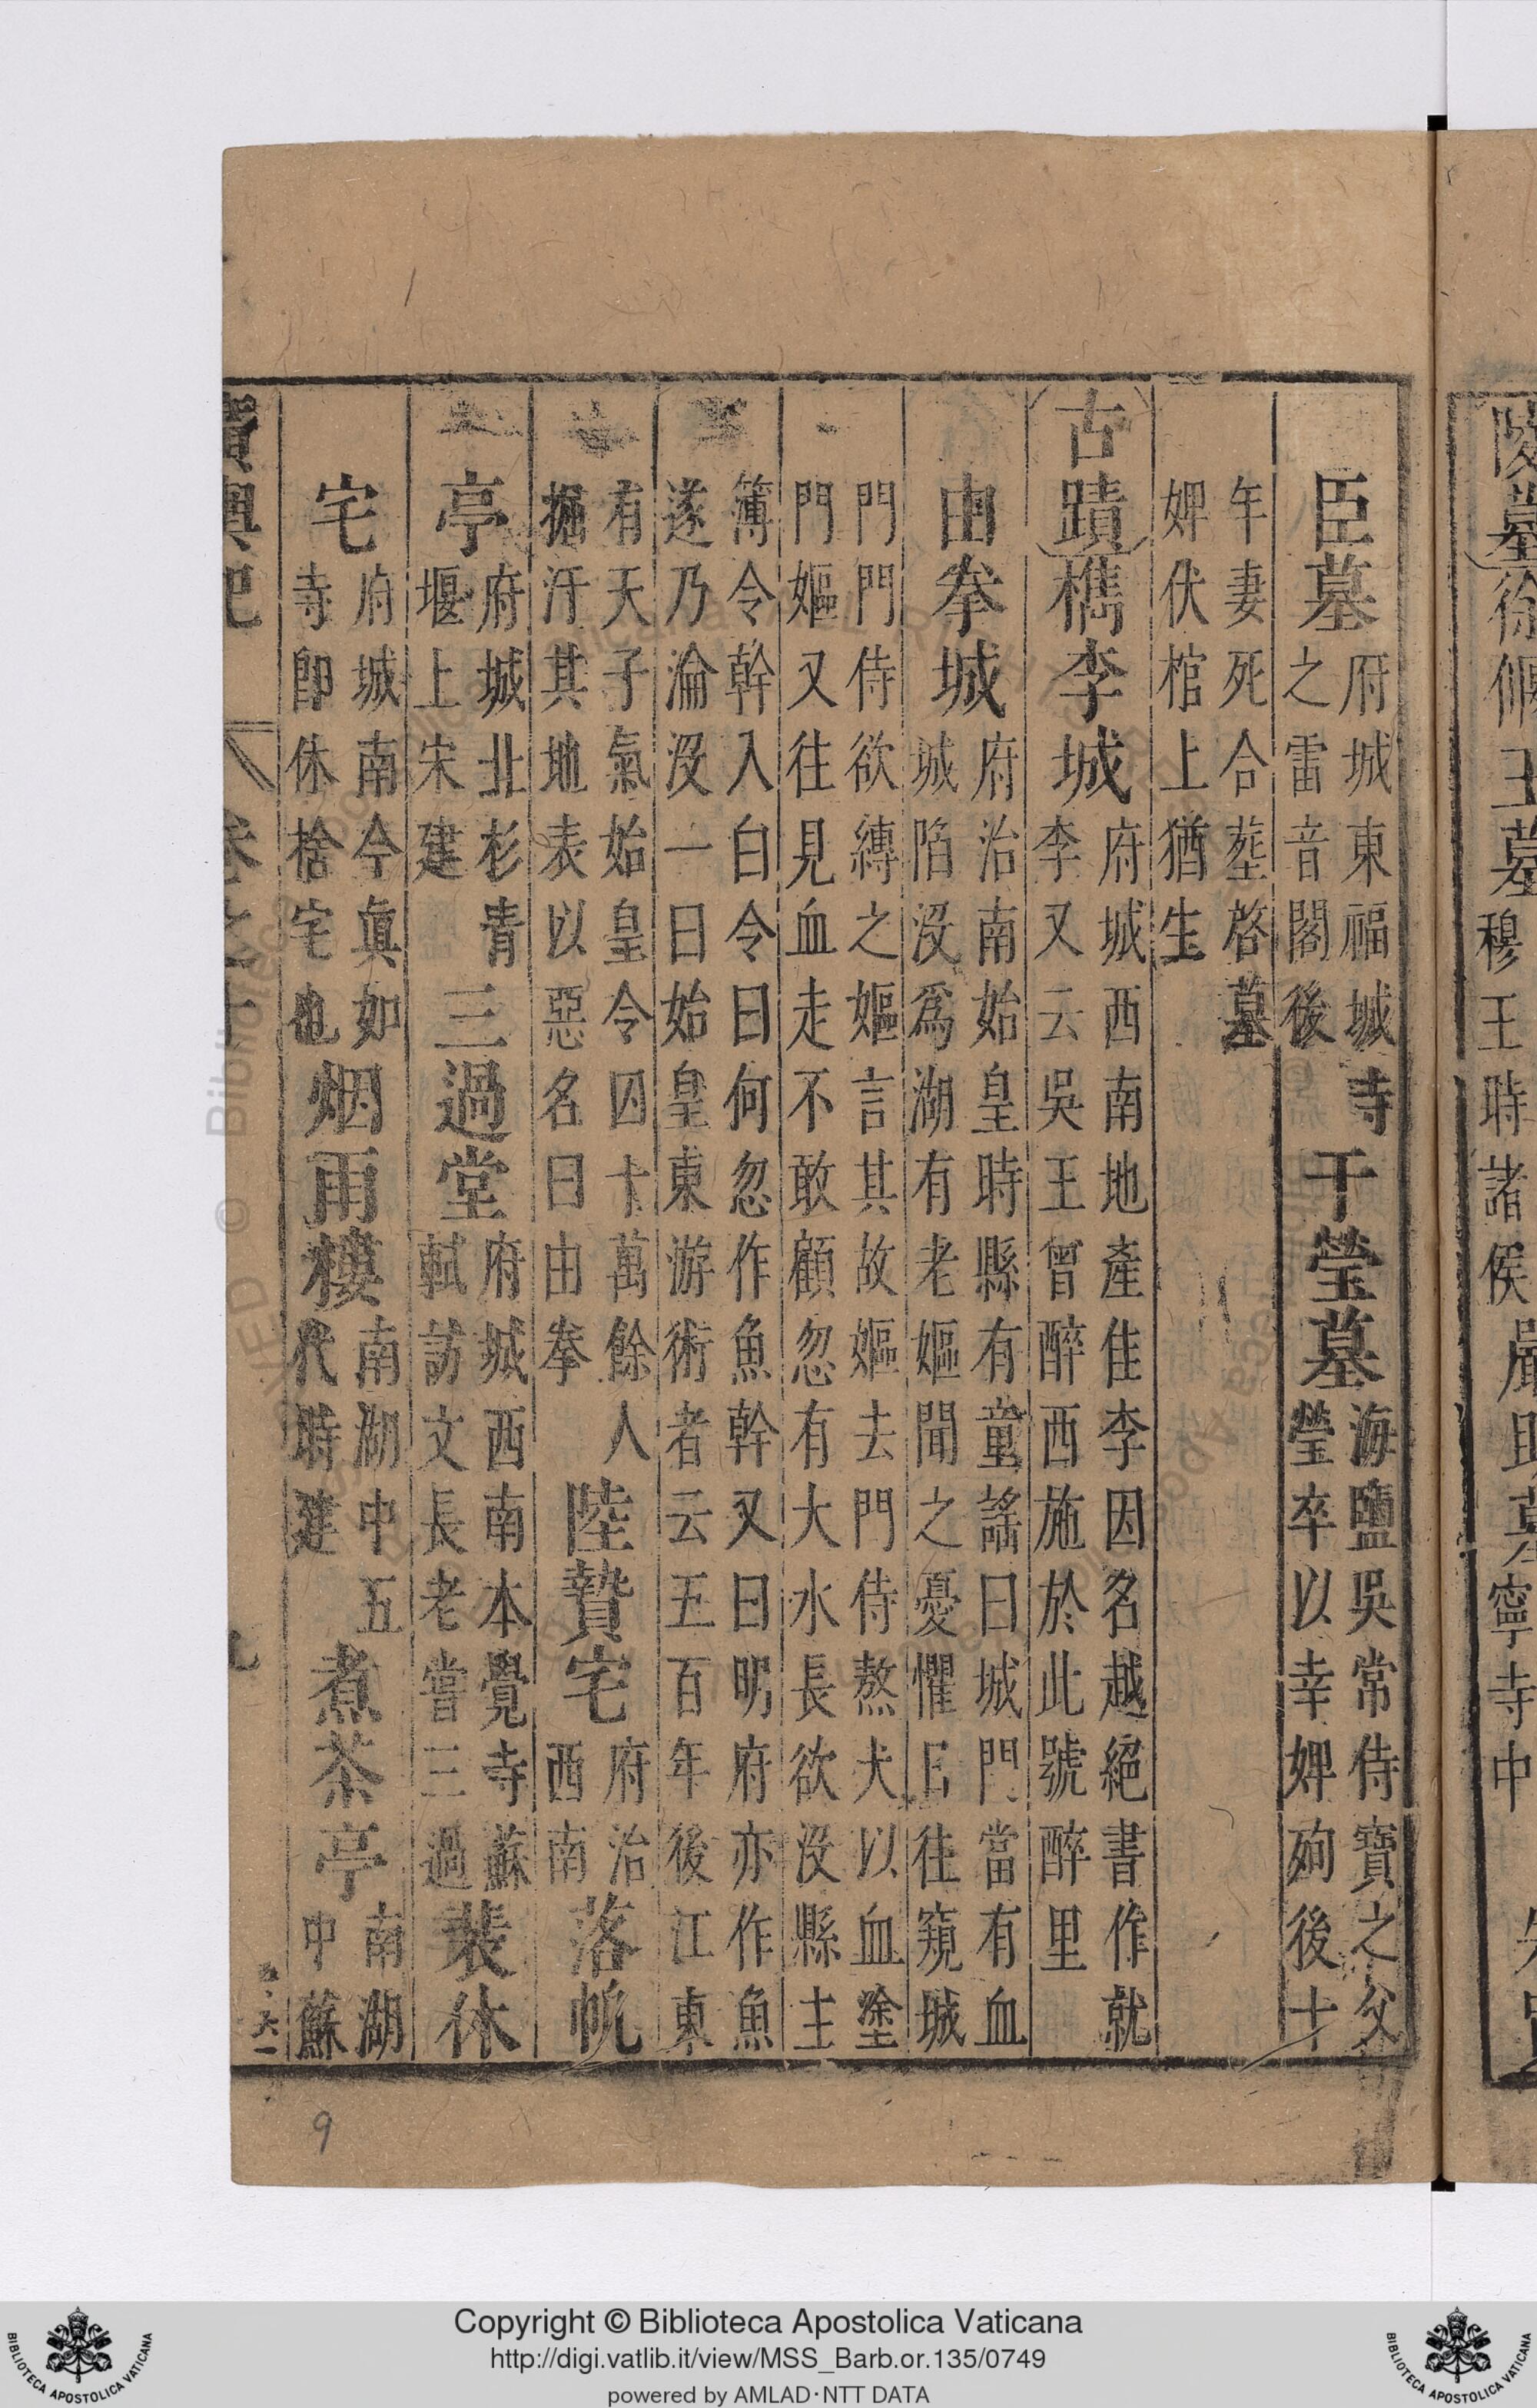 臣墓府城東福城寺
之雷音閣後干瑩墓海鹽吳常侍寶之父
瑩卒以幸婢殉後十
年妻死合葬啓墓
婢伏棺上猶生
古蹟檇李城府城西南地產佳李因名越絕書作就
李又云吳王曾醉西施於此號醉里
由拳城府治南始皇時縣有童謠曰城門當有血
城陷沒爲湖有老嫗聞之憂懼日往窺城
門門侍欲縛之嫗言其故嫗去門侍熬犬以血塗
門嫗又往見血走不敢顧忽有大水長欲沒縣主
簿令幹入白令曰何忽作魚幹又曰明府亦作魚
遂乃淪沒一曰始皇東游術者云五百年後江東
有天子氣始皇令囚十萬餘人
掘汙其地表以惡名曰由拳陸贄宅府治
西南落帆
亭府城北杉青
堰上宋建三過堂府城西南本覺寺蘇
軾訪文長老嘗三過裴休
宅府城南今眞如
寺卽休捨宅也烟雨樓南湖中五
代時建煮茶亭南湖
中蘇
陵墓徐偃王墓
穆王時諸侯
寧寺中
9
Copyright © Biblioteca Apostolica Vaticana
http://digi.vatlib.it/view/MSS_Barb.or.135/0749
powered by AMLAD·NTT DATA
BIBLIOTECA APOSTOLICA VATICANA
BIBLIOTECA APOSTOLICA VATICANA